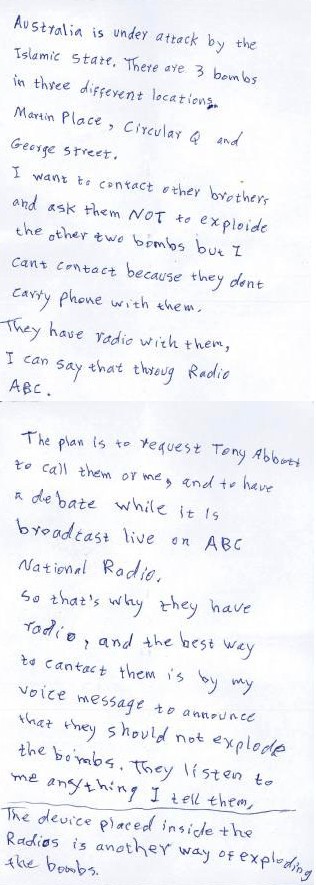 Australia is under attack by the
Islamic state. There are 3 bombs
in three different locations.
Martin Place, Circular Q and
George street.
I want to contact other brothers
and ask them NOT to exploide
the other two bombs but I
cant contact because they dont
carry phone with them.
They have radio with them,
I can say that throug Radio
ABC.
The plan is to request Tony Abbott
to call them or me, and to have
a debate while it is
broadcast live on ABC
National Radio.
So that's why they have
radio, and the best way
to cantact them is by my
voice message to announce
that they should not explode
the bombs. They listen to
me anything I tell them,
The device placed inside the
Radios is another way of exploding
the boobs.